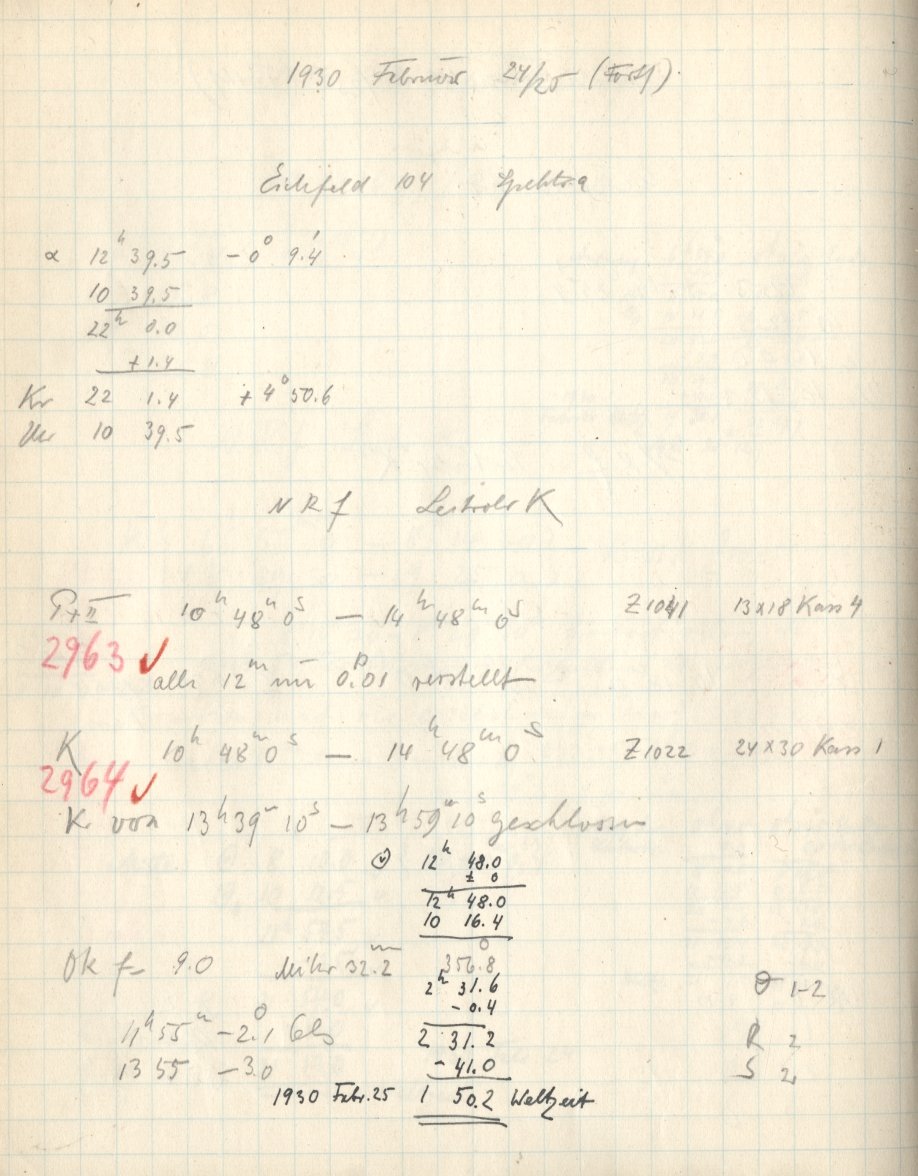 1930 Februar 24/25 (Forts).
Eichfeld 104 Spektra
α 12ʰ 39.5 -0° 9.4'
10 39.5
22ʰ 0.0
+1.4
Kr 22 1.4 +4° 50.6
Uhr 10 39.5
N R f Leitrohr K
T+II 10ʰ 48ᵐ 0ˢ — 14ʰ 48ᵐ 0ˢ Z1041 13x18 Kass 4
2963 ✓
alle 12ᵐ um 0.ᵖ01 verstellt
K 10ʰ 48ᵐ 0ˢ — 14ʰ 48ᵐ 0ˢ Z1022 24x30 Kass 1
2964 ✓
K von 13ʰ 39ᵐ 10ˢ — 13ʰ 59ᵐ 10ˢ geschlossen
12ʰ 48.0
± 0
12ʰ 48.0
10 16.4
Ok f= 9.0 Mikr 32.2 356.8°
2ʰ 31.6
-0.4
1-2
11ʰ 55ᵐ -2.°1 Cels 2 31.2 R 2
13 55 -3.0 -41.0 S 2
1930 Febr. 25 1 50.2 Weltzeit